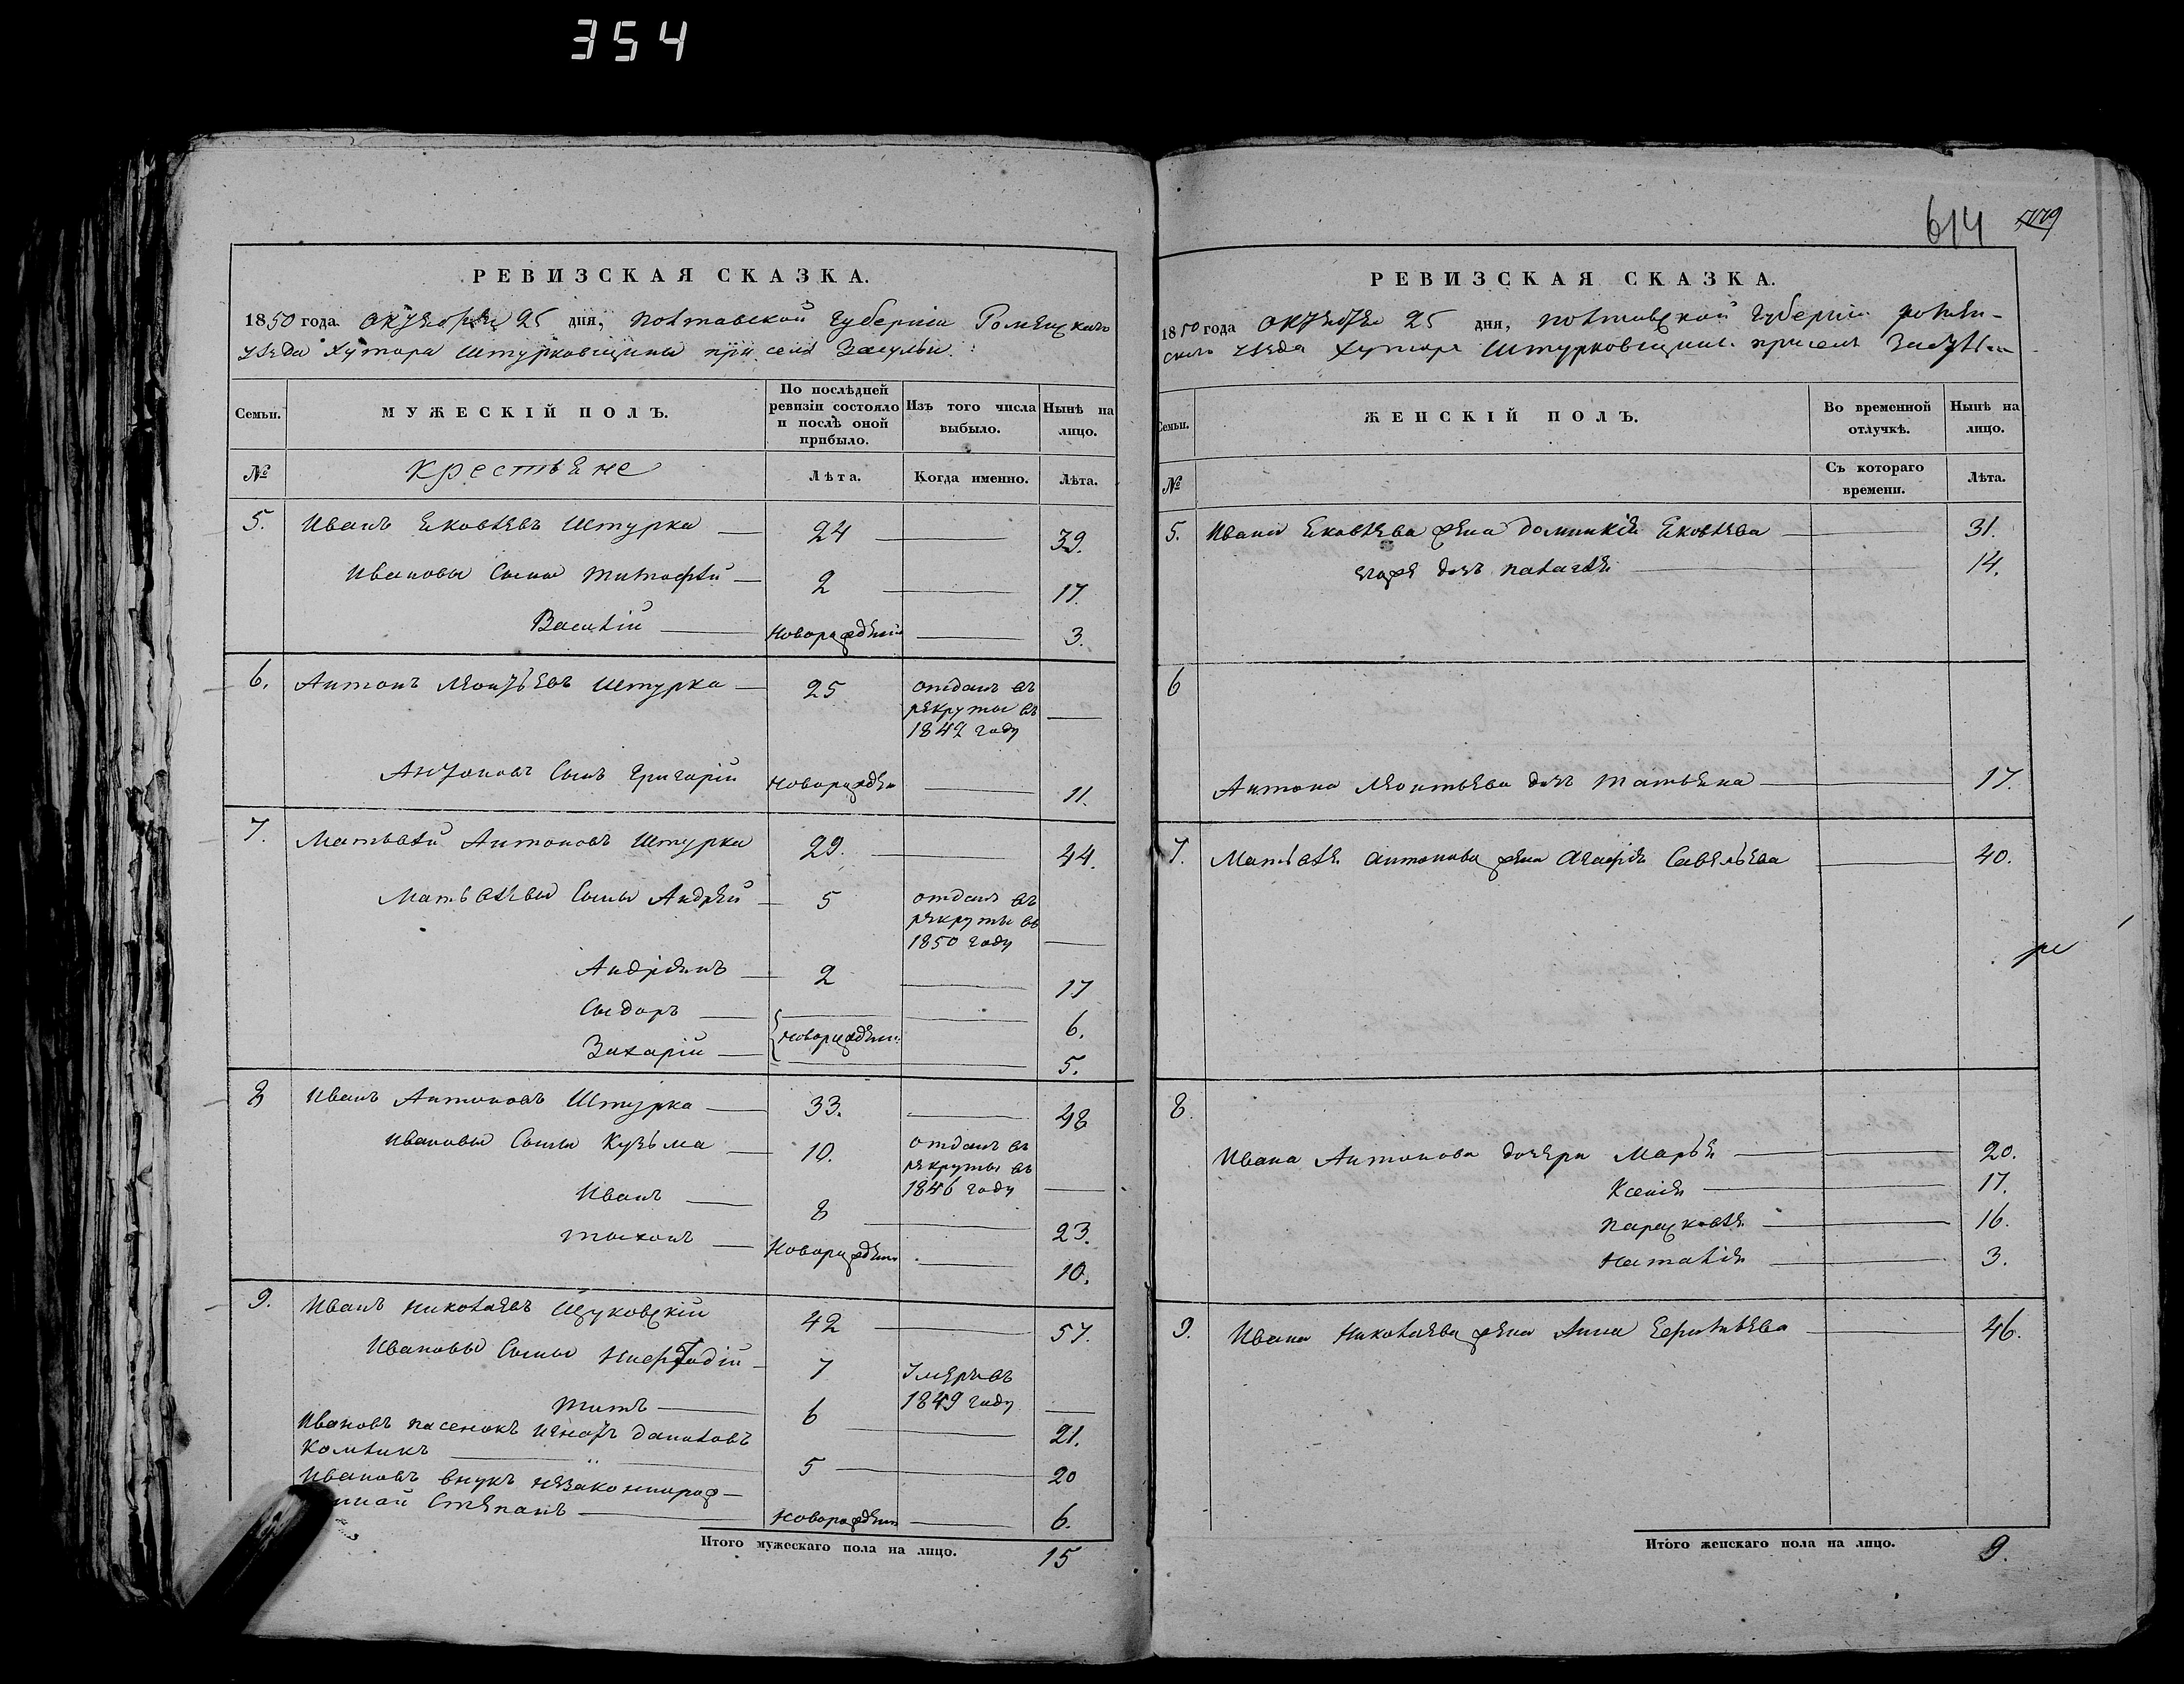 354
614 779
РЕВИЗСКАЯ СКАЗКА.
1850 года Октября 25 дня, Полтавской Губерніи Роменскаго
уѣзда Хутора Штурковщины при селѣ Засульи.
Семьи. МУЖЕСКІЙ ПОЛЪ. По послѣдней ревизіи состояло и послѣ оной прибыло. Изъ того числа выбыло. Нынѣ на лицо.
№ Крестьяне Лѣта. Когда именно. Лѣта.
5. Иванъ Яковлевъ Штурка 24 39.
Ивановы Сыны Тимофѣй 2 17.
Василій Новорожденн 3.
6. Антонъ Леонтьевъ Штурка 25 отданъ въ
рекруты въ
1842 году
Антоновъ Сынъ Григорій новорожден 11.
7. Матьвѣй Антоновъ Штурка 29. 44.
Матьвѣевы Сыны Андрей 5 отданъ въ
рекруты въ
1850 году
Андріянъ 2 17
Сыдоръ 6.
новорожденн
Захарій 5.
8 Иванъ Антоновъ Штурка 33. 48
Ивановы Сыны Кузьма 10. отданъ въ
рекруты въ
1846 году
Иванъ 8 23.
Тихонъ Новорожденн 10.
9. Иванъ Николаевъ Щуковскій 42 57.
Ивановы Сыны 7 Умеръ въ
1849 году
Титъ 6 21.
Ивановъ пасенокъ Игнатъ Даниловъ
Комликъ 5 20
Ивановъ внукъ незаконнорож-
нной Степанъ новорожден 6.
Итого мужескаго пола на лицо. 15
РЕВИЗСКАЯ СКАЗКА.
1850 года Октября 25 дня, Полтавской Губерніи Ромен-
скаго уѣзда Хутора Штурковщины при селѣ Засульи
Семьи. ЖЕНСКІЙ ПОЛЪ. Во временной отлучкѣ. Нынѣ на лицо.
№ Съ котораго времени. Лѣта.
5. Ивана Яковлева жена Домникія Яковлева 31.
Егоже дочь Палагѣя 14.
6
Антона Леонтьева дочь Татьяна 17.
7. Матьвѣя Антонова жена Агафія Савельева 40.
8.
Ивана Антонова дочери Марья 20.
Ксенія 17.
Парасковѣя 16.
Наталія 3.
9. Ивана Николаева жена Анна 46.
Итого женскаго пола на лицо. 9.